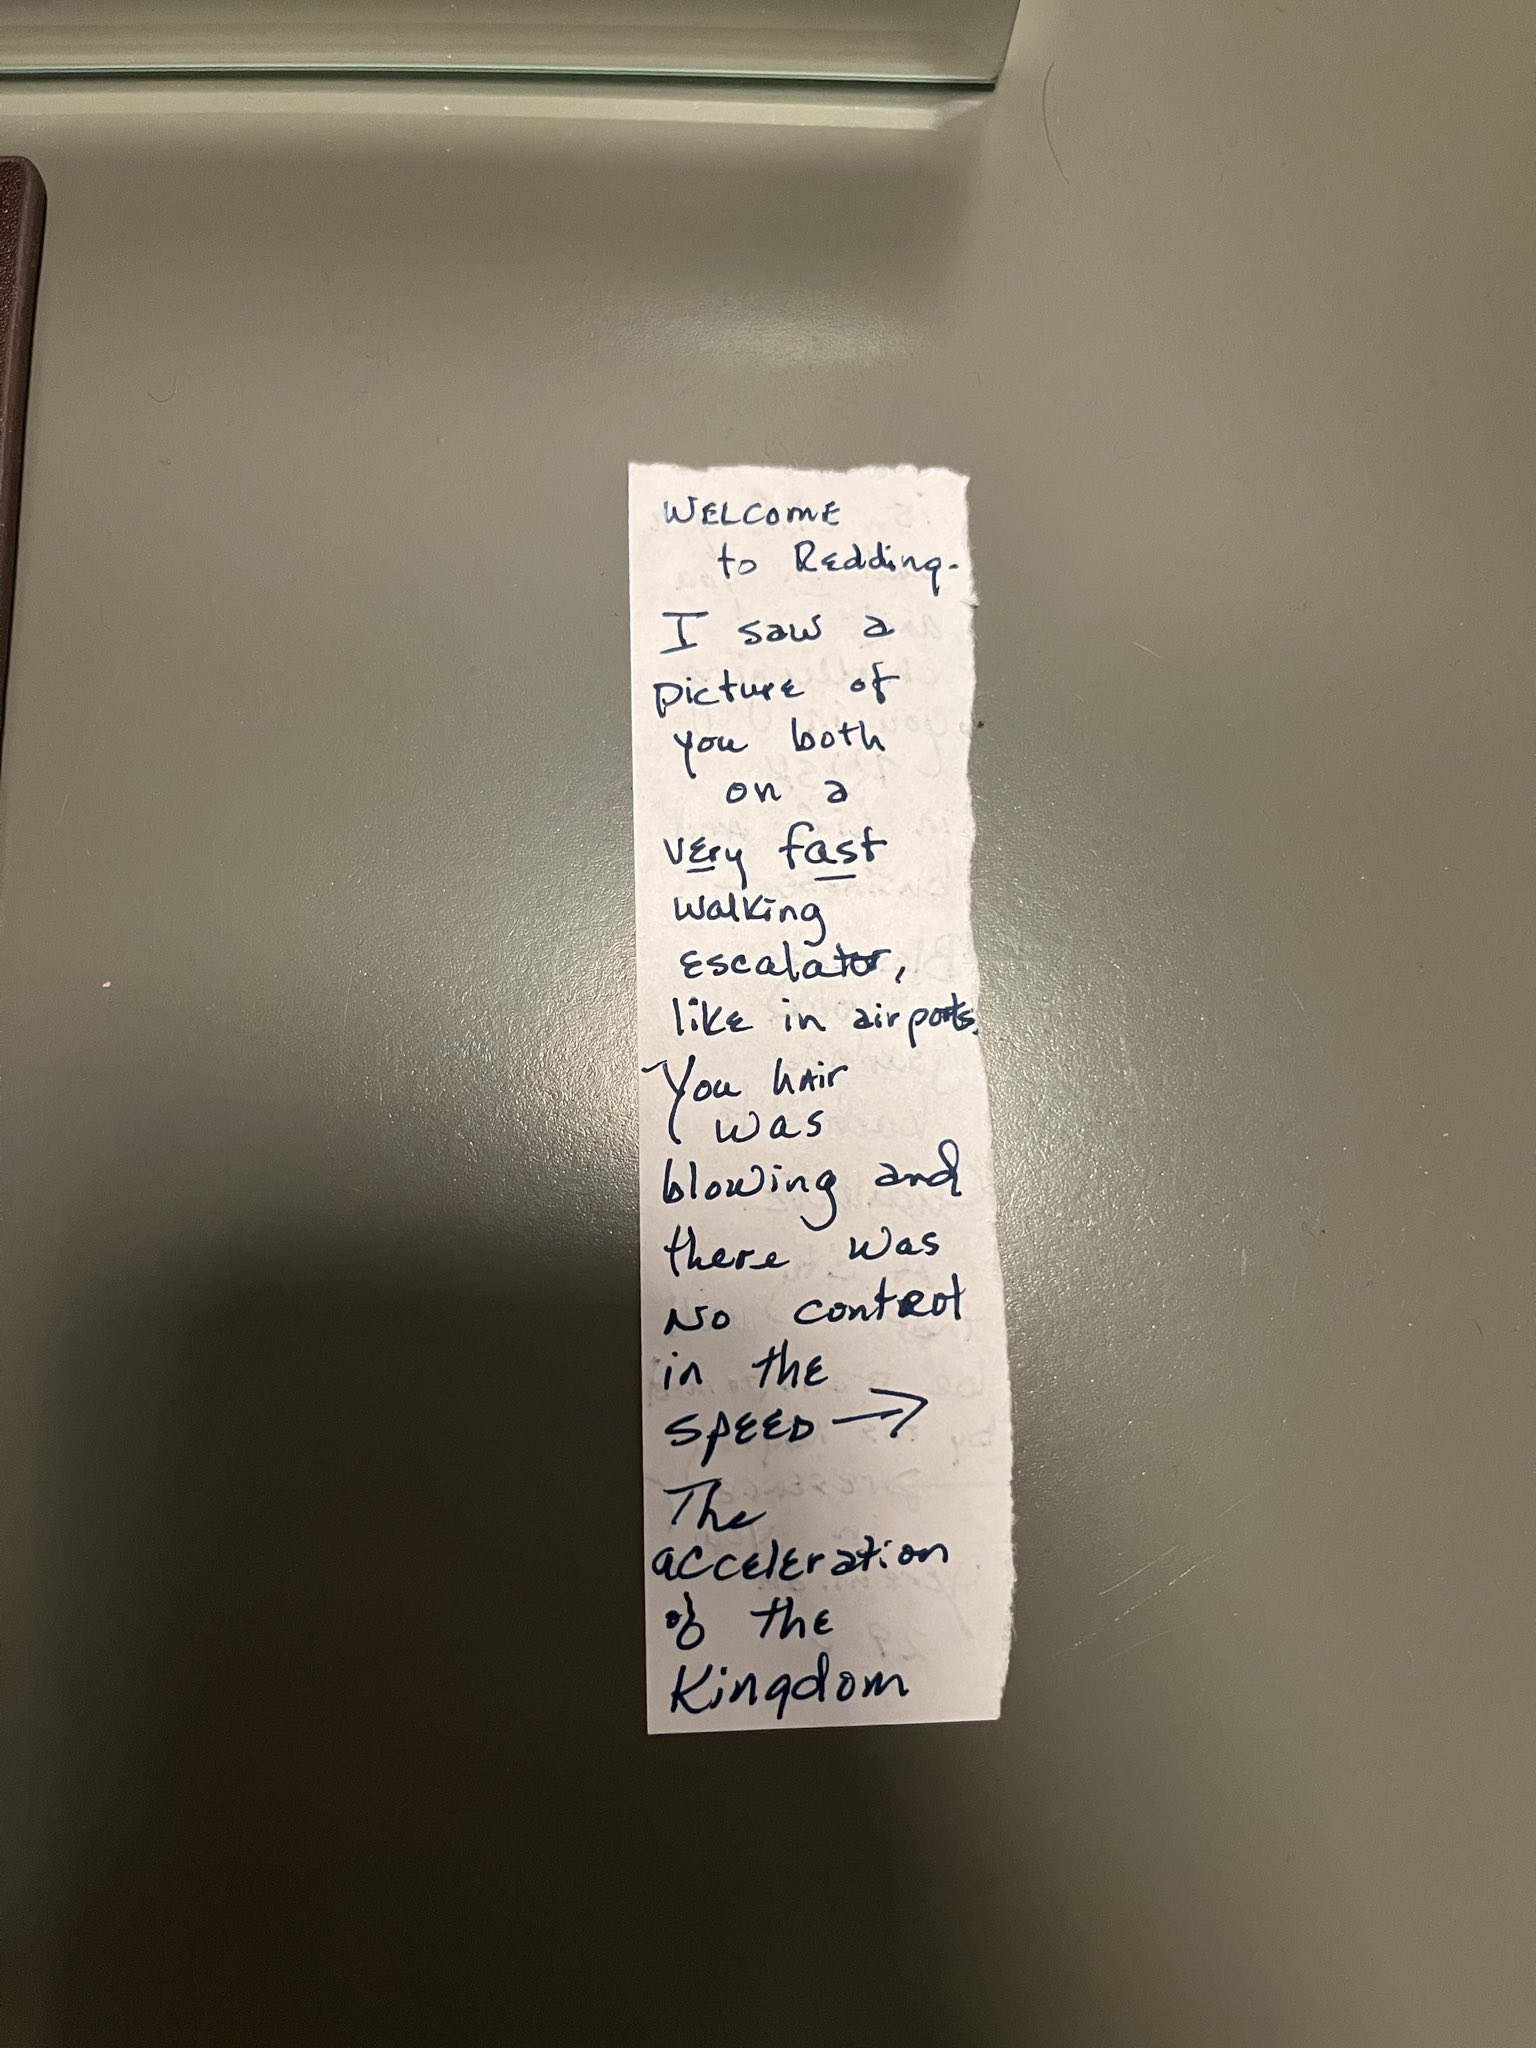 WELCOME
to Redding.
I saw a
picture of
you both
on a
very fast
walking
escalator,
like in airports.
You hAir
was
blowing and
there was
NO control
in the
SPEED →
The
acceleration
of the
Kingdom